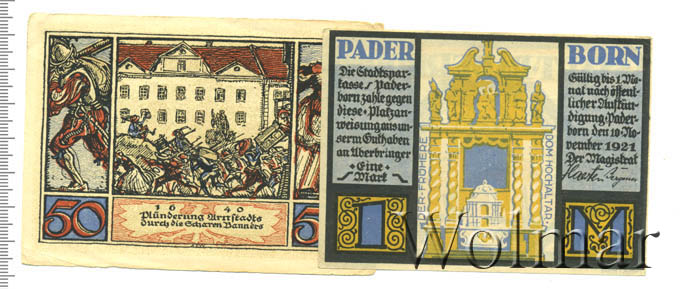 50
5
16 40
Plünderung Arnstadts
durch die Scharen Banners
PADER
BORN
Die Stadtspar-
kasse Pader-
born zahle gegen
diese Platzan-
weisung aus un-
serm Guthaben
an Überbringer
Eine
Mark
DER FRÜHERE
DOM HOCHALTAR
Gültig bis 1 Mo-
nat nach öffent-
licher Aufkün-
digung Pader-
born den 10 No-
vember 1921
Der Magistrat
1
M
Wolmar